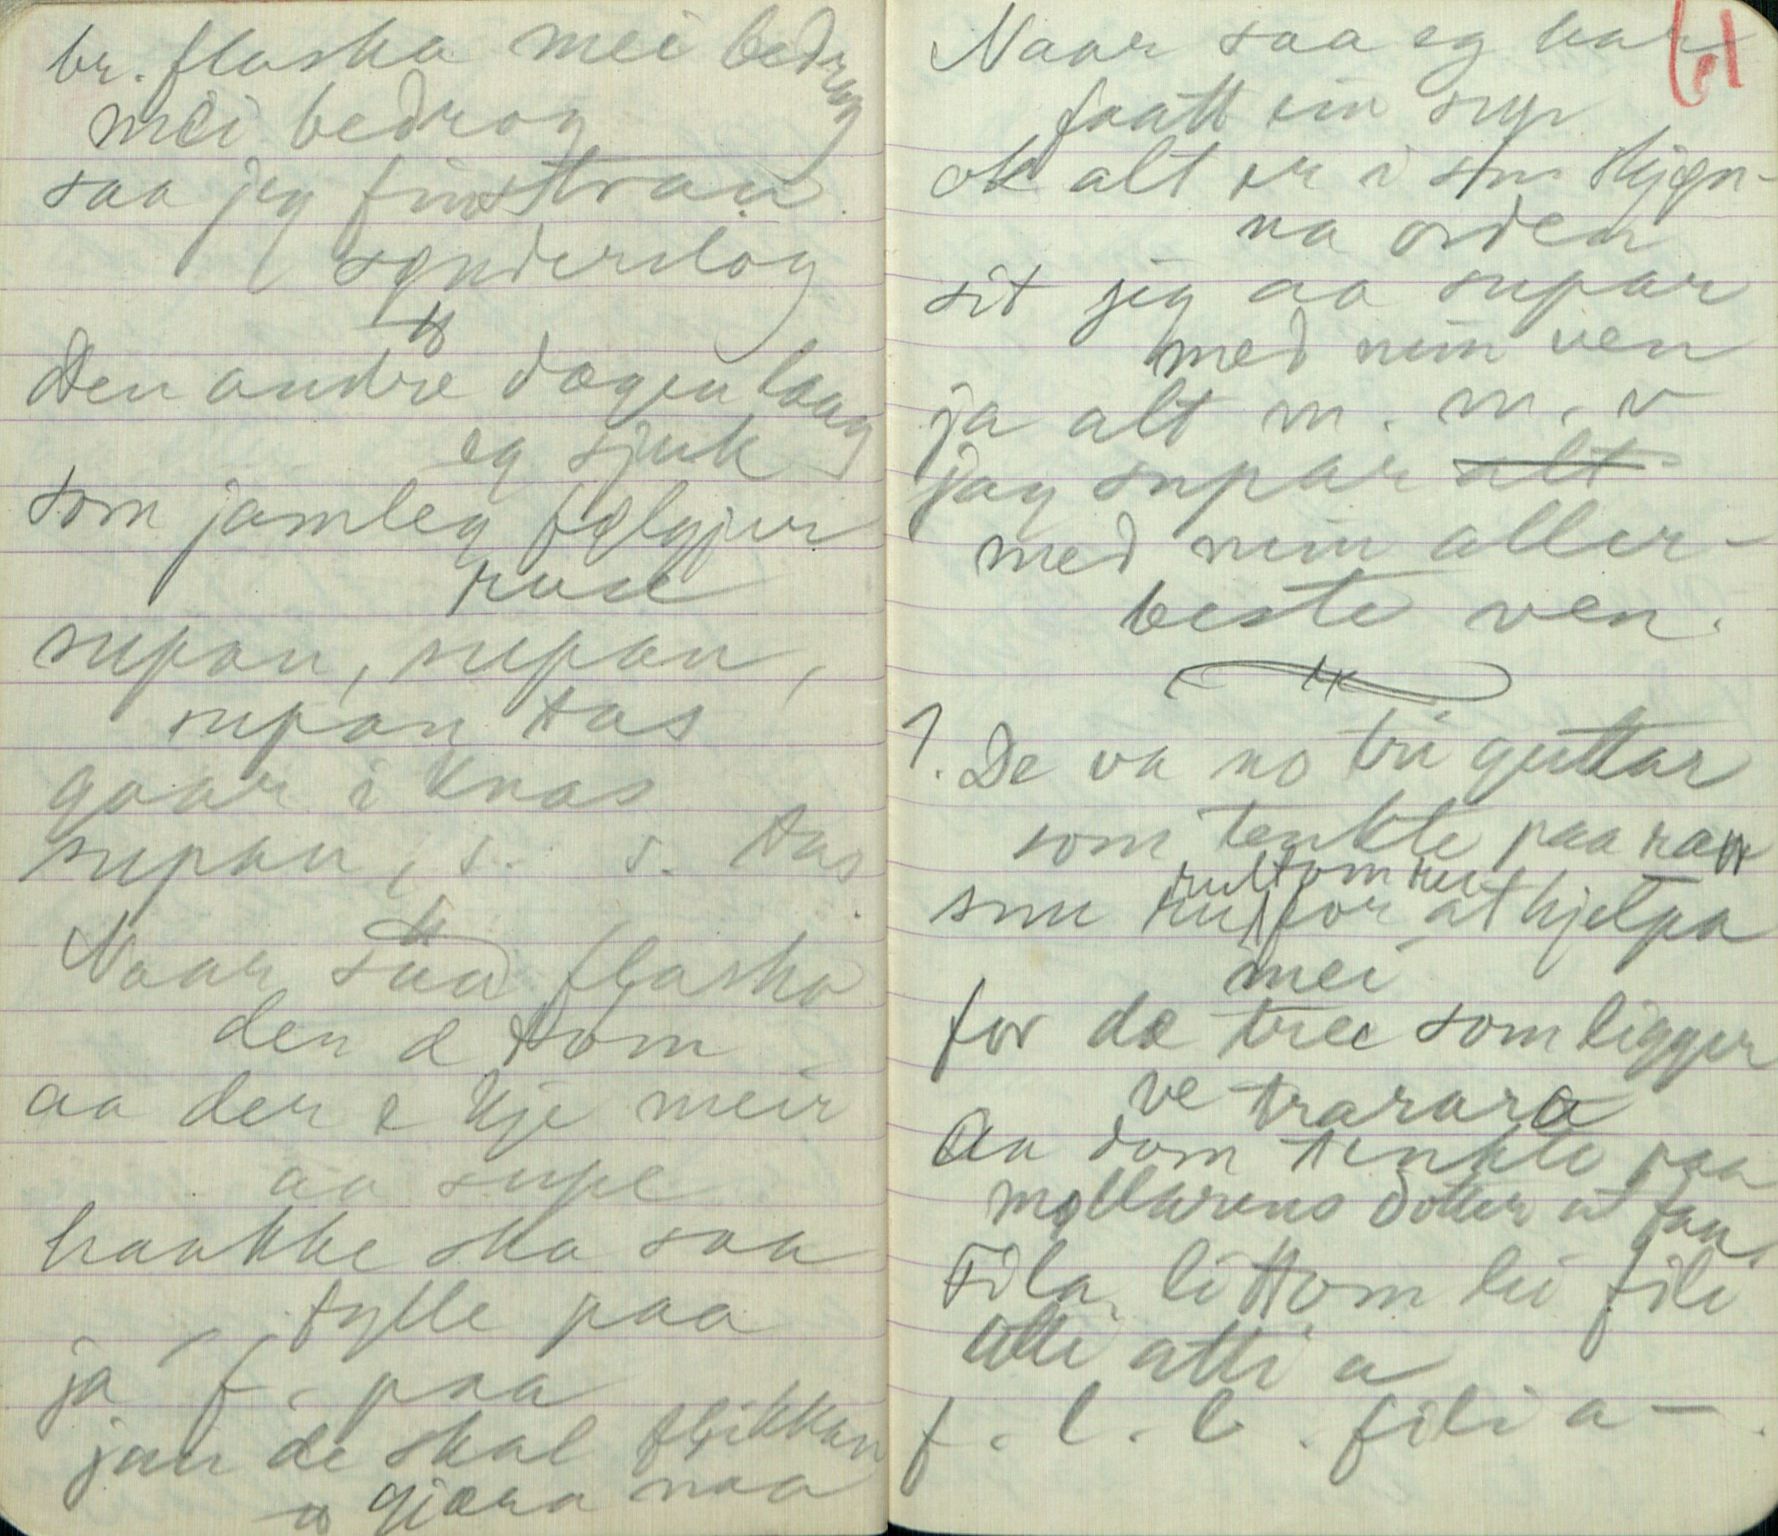 br. flaska mei bedrog
mei bedrog
saa jeg finstran
synderslog
Den andre dagen laag
eg sjuk
som jamleg følgjer
ruse
supan, supan,
supan tas
gaar i knas
supan, s. s. tas
Naar saa flasko
den e tom
aa der e kje meir
aa supe
haakke ska saa
fylle paa
ja f. paa
jau de skal flikkun
gjæra naa
61
Naar saa eg har
faatt ein sup
ok alt er i sin skjøn-
na orden
sit jeg aa supar
med min ven
ja alt m. m. v
jag supar alt
med min aller-
beste ven.
1. De va no tri guttar
som tenkte paa
rultom rei
snu for at hjelpa
mei
for de tree som ligger
ve trarara
Aa dom tenkte paa
møllarens dotter at faa,
Fila littom lii fili
atti atti a
f. l. l. fili a —.